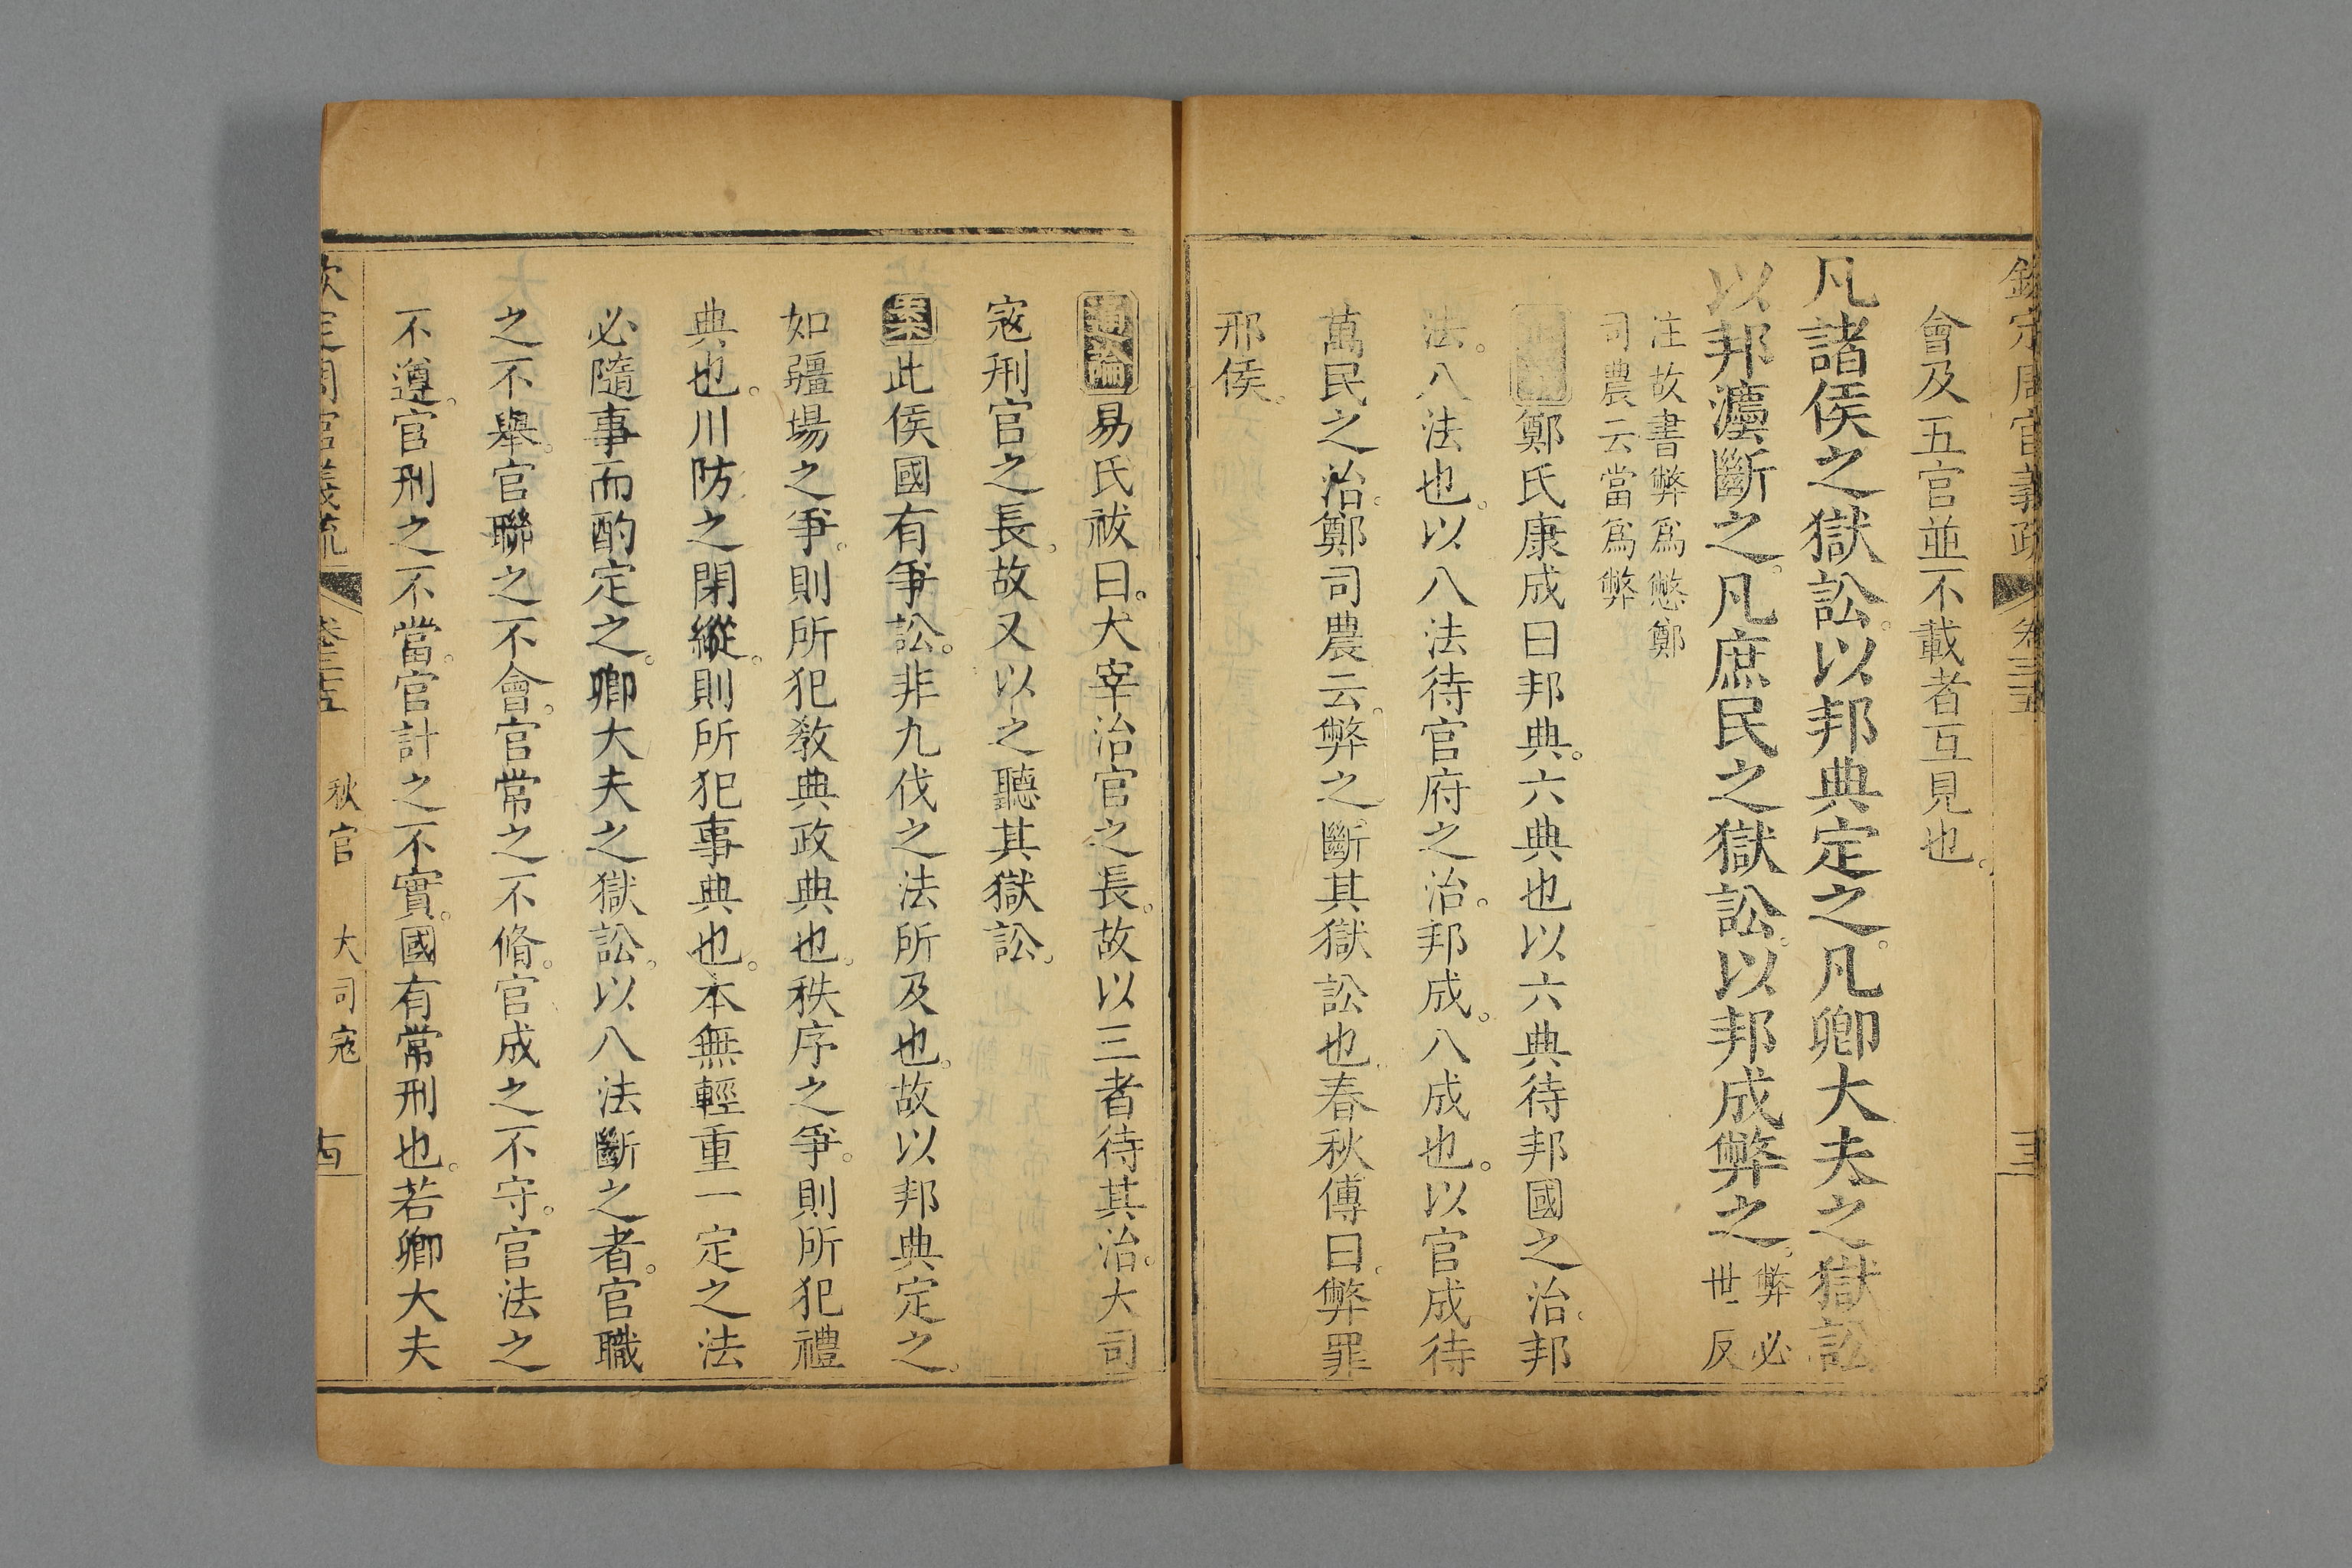 欽定周官義疏 卷三十五
會及五官並不載者互見也。
凡諸侯之獄訟。以邦典定之。凡卿大夫之獄訟
以邦灋斷之。凡庶民之獄訟。以邦成弊之。弊必世反
注故書弊爲憋鄭
司農云當爲弊
鄭氏康成曰邦典。六典也以六典待邦國之治。邦
法。八法也。以八法待官府之治。邦成。八成也。以官成待
萬民之治。鄭司農云。弊之。斷其獄訟也春秋傳曰。弊罪
邢侯。
通論易氏祓曰。大宰治官之長。故以三者待其治。大司
寇刑官之長。故又以之聽其獄訟。
案此侯國有爭訟。非九伐之法所及也。故以邦典定之。
如疆場之爭。則所犯敎典政典也。秩序之爭。則所犯禮
典也。川防之閉縱。則所犯事典也。本無輕重一定之法
必隨事而酌定之。卿大夫之獄訟。以八法斷之者。官職
之不舉。官聯之不會。官常之不脩。官成之不守。官法之
不遵。官刑之不當。官計之不實。國有常刑也。若卿大夫
欽定周官義疏 卷三十五 秋官 大司寇